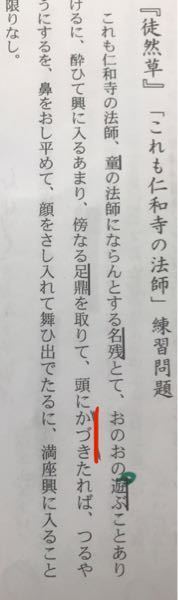 『徒然草』「これも仁和寺の法師」練習問題
これも仁和寺の法師、童の法師にならんとする名残とて、おのおの遊ぶことあり
けるに、酔ひて興に入るあまり、傍なる足鼎を取りて、頭にかづきたれば、つるや
うにするを、鼻をおし平めて、顔をさし入れて舞ひ出でたるに、満座興に入ること
限りなし。